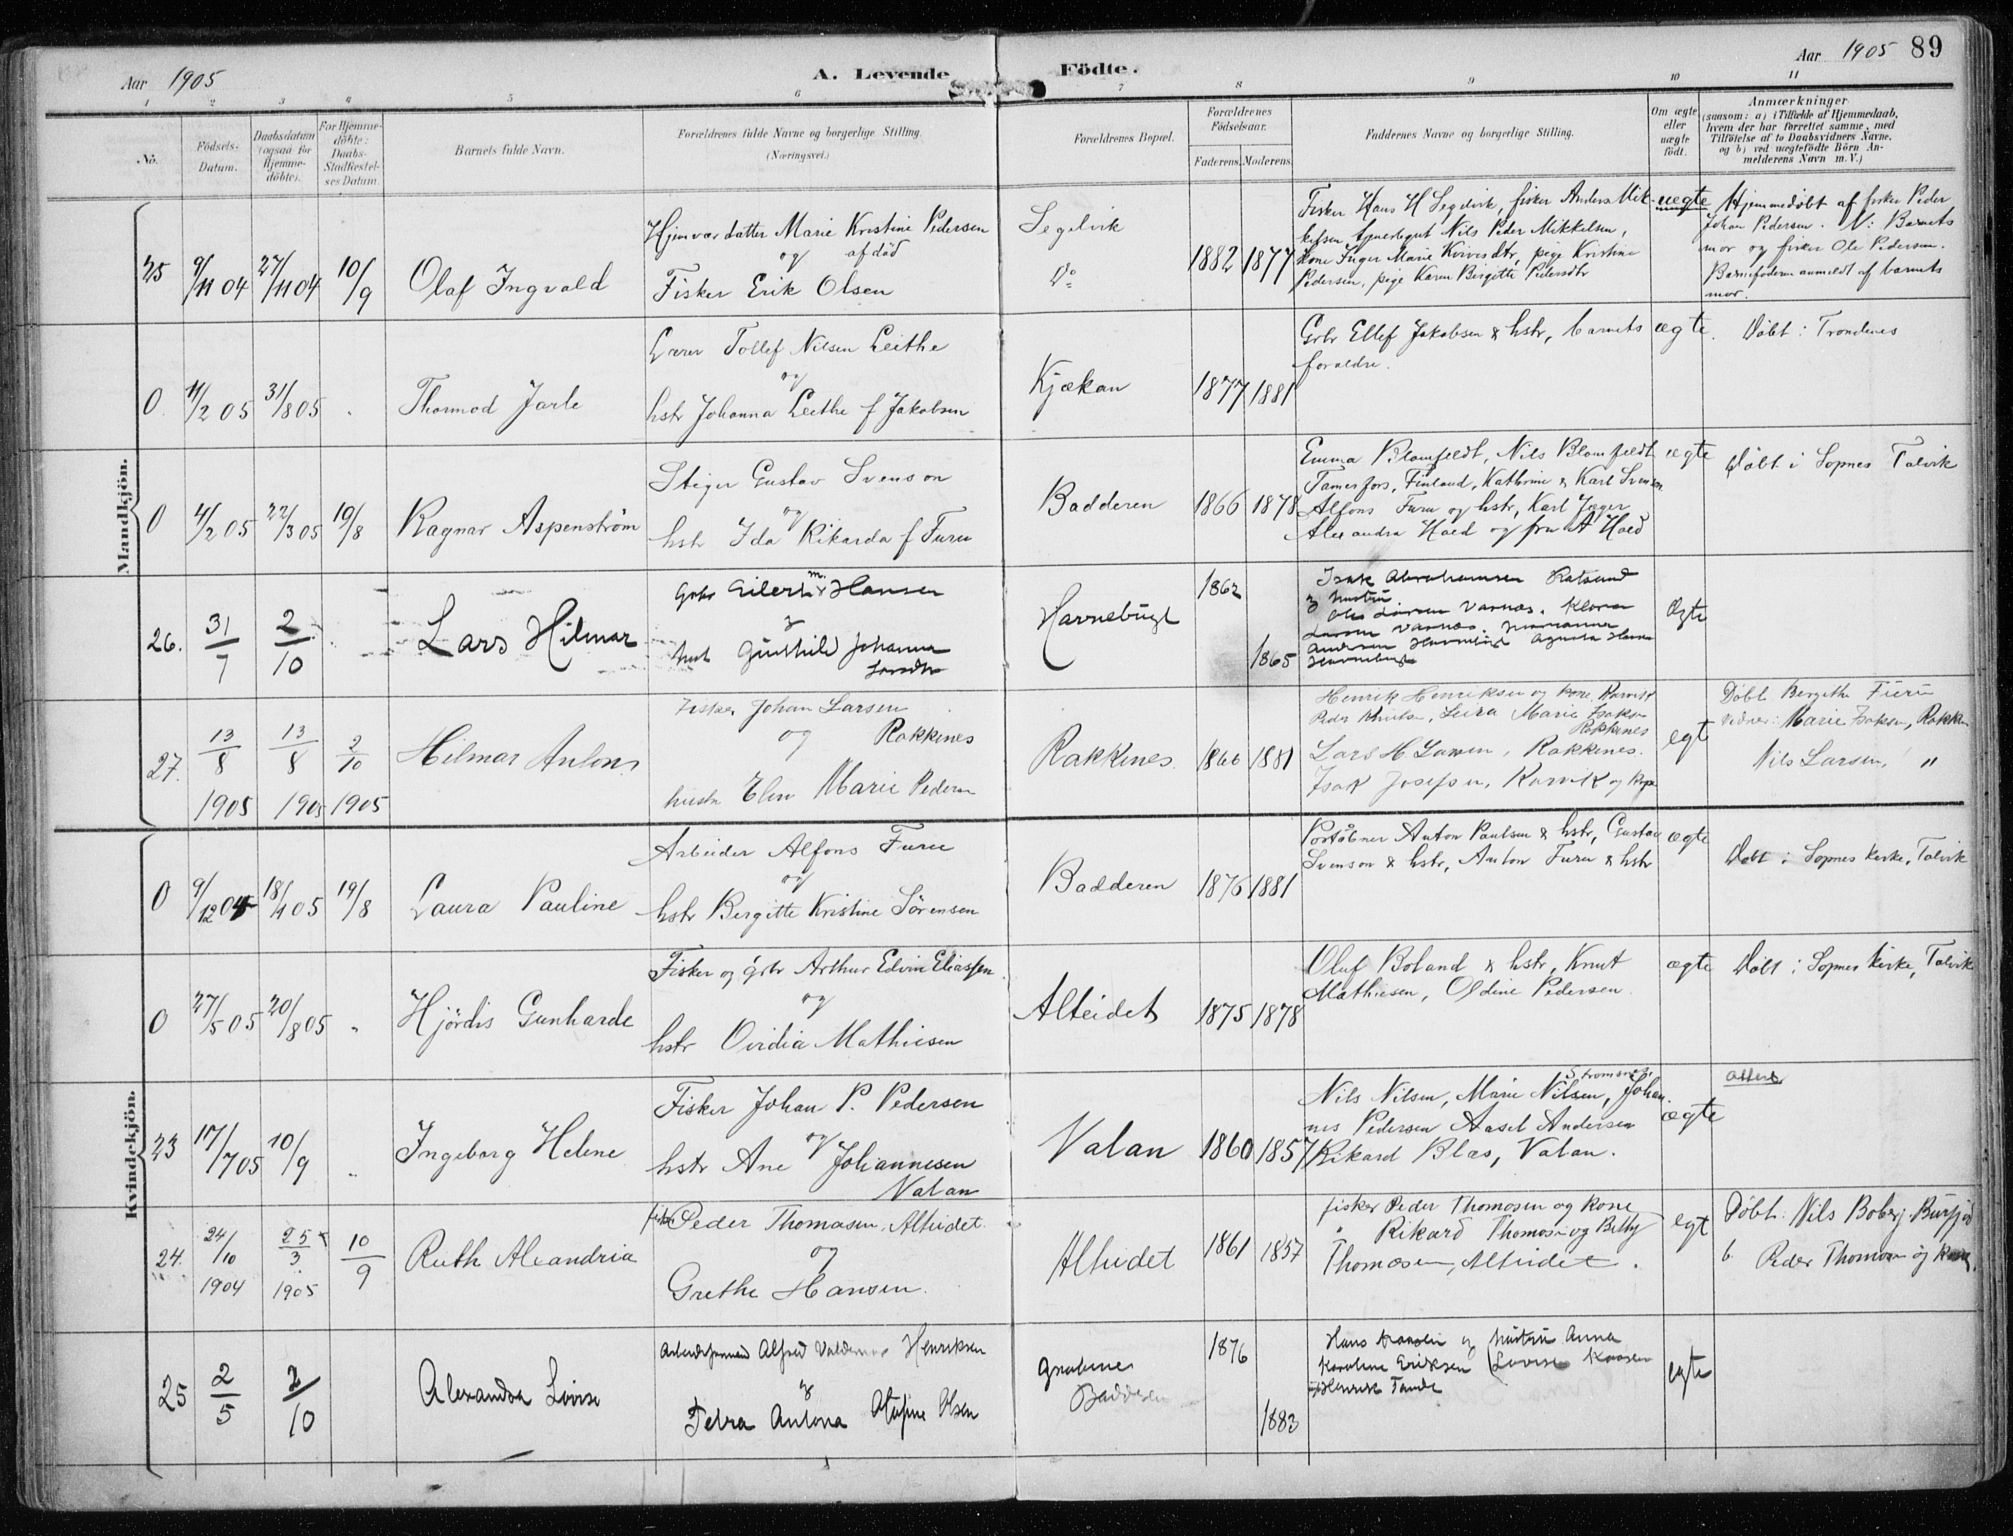 Aar 1905
A. Levende Födte.
Aar 1905 89
1 2 3 4 5 6 7 8 9 10 11
No.
Födsels-
Datum.
Daabsdatum
(ogsaa for
Hjemme-
döbte).
For Hjemme-
döbte:
Daabs-
Stadfæstel-
ses Datum.
Barnets fulde Navn.
Forældrenes fulde Navne og borgerlige Stilling.
(Næringsvei.)
Forældrenes Bopæl.
Forældrenes
Födselsaar.
Faderens. Moderens.
Faddernes Navne og borgerlige Stilling.
Om ægte
eller
uægte
födt.
Anmærkninger
(saasom: a) i Tilfælde af Hjemmedaab,
hvem der har forrettet samme, med
Tilföielse af to Daabsvidners Navne,
og b) ved uægtefödte Börn An-
melderens Navn m. V.)
Mandkjön.
25 9/11 04 27/11 04 10/9 Olaf Ingvald
datter Marie Kristine Pedersen
og afdöd
Fisker Erik Olsen
Segelvik
Do
1882 1877
Fisker Hans H Segelvik, fisker Anders Mik-
kelsen Nils Peder Mikkelsen,
kone Inger Marie pige Kristine
Pedersen, pige Karen Bergitte Pedersdtr
uægte
Hjemmedöbt af fisker Peder
Johan Pedersen. V: Barnets
mor og fisker Ole Pedersen.
Barnefaderen anmeldt af barnets
mor.
0 11/2 05 31/8 05 " Thormod Jarle
Lærer Tollef Nilsen Leithe
og
hstr Johanna Leithe f Jakobsen
Kjækan
1877 1881
Grbr Ellef Jakobsen & hstr, barnets
forældre.
ægte.
Döbt i Trondenes
0 4/2 05 22/3 05 19/8 Ragnar Aspenström
Stiger Gustav Svenson
og
hstr Ida Rikarda f Furu
Badderen
1866 1878
Emma Blomfeldt, Nils Blomfeldt
Tamerfors, Finland, Kathrine & Karl Svenson
Alfons Furu og hstr, Karl Jæger
Alexandra Hoed og fru A Hoed
ægte
Döbt i Sopnes Talvik
26. 31/7 2/10 Lars Hilmar
Grbr Eilert M. Hansen
&
hust Gunhild Johanna
Larsdtr
Havnebugt
1862
1865
Isak Abrahamsen Rotsund
& hustru
Ole Larsen Varnæs.
Larsen Varnæs.
Andersen Havnebugt
Havnebugt
Ægte
27. 13/8 1905 13/8 1905 2/10 1905 Hilmar Anton
Fisker Johan Larsen
og Rakkenes
hustr Elen Marie Pedersen
Rakkenes
1866 1881
Henrik Henriksen og kone
Marie Isaksen
Rakkenes
Lars H Larsen, Rakkenes.
Isak Josefsen, Karvik og kone
egte
Döbt Bergithe Furu
vidner: Marie Isaksen, Rakken
Nils Larsen, "
Kvindekjön.
0 9/12 04 18/1 05 19/8 Laura Pauline
Arbeider Alfons Furu
og
hstr Bergitte Kristine Sörensen
Badderen
1876 1881
Postaabner Anton Paulsen & hstr, Gustav
Svenson & hstr, Anton Furu & hstr
ægte
Döbt i Sopnes kirke, Talvik
0 27/5 05 20/8 05 " Hjördis Gunharde
Fisker og grbr Arthur Edvin Eliassen.
og
hstr Ovidia Mathiesen
Alteidet
1875 1878
Oluf Boland & hstr, Knut
Mathiesen, Oldine Pedersen
ægte
Döbt i Sopnes kirke, Talvik
23 17/7 05 10/9 " Ingeborg Helene
Fisker Johan P. Pedersen
og
hstr Ane Johannesen
Valan
Valan
1860 1857
Nils Nilsen, Marie Nilsen, Johan-
nes Pedersen Aasel Andersen
Rikard Blæs, Valan.
ægte
24. 24/10 1904 25/3 1905 10/9 Ruth Alexandria
fisk Peder Thomasen, Alteidet
og
Grethe Hansen.
Alteidet
1861 1857
fisker Peder Thomasen og kone
" Rikard Thomasen og Betty
Thomasen, Alteidet.
egte
Döbt: Nils Boberg, Burfjord
b Peder Thomasen og kone
25 2/5 2/10 Alexandra Lovise
Alfred Valdemar Henriksen
&
Petra Antona Olsen
Badderen
1876
1883
Hans og hustru Anna
Karoline Eriksen Lovise
Henrik
egte